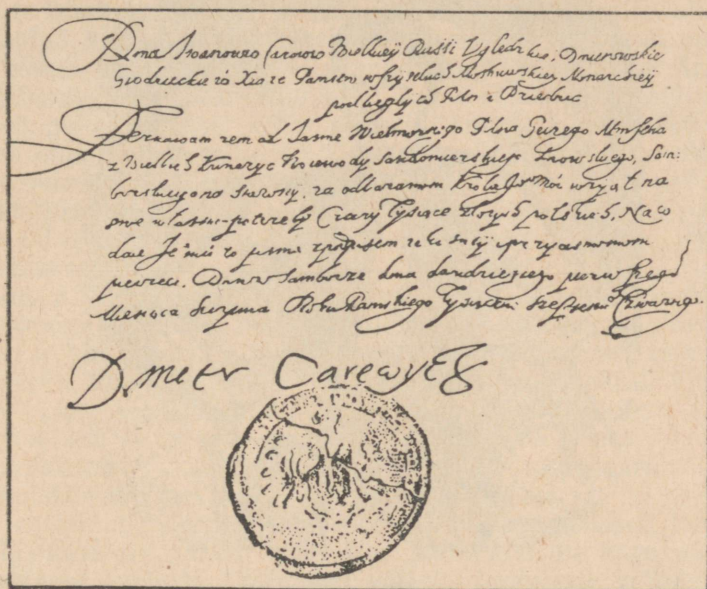 Iwanowic Carowic Wielkiey Russi Ugledzkie, Dmitrowskie
Grodzieckie Xiąże Panstw wszystkich Moskiewskiey Monarchiey
podległych Pan i Dziedzic
Zeznawam żem od Jasnie Wielmożnego Pana Jerzego Mniszcha
z Wielkich Kunczyc Woiewody Sandomierskiego Lwowskiego, Sam-
borskiego Starosty, za odebraniem Krola Jego wziął na
swe własne potrzeby Cztery Tysiące złotych polskich, Na co
daie Je to pismo z podpisem ręki
pieczęci. Dan w Samborze dnia dwudziestego pierwszego
Miesiąca Roku Panskiego Tysiącznego szescsetnego Czwartego.
Dmetr Carewycz